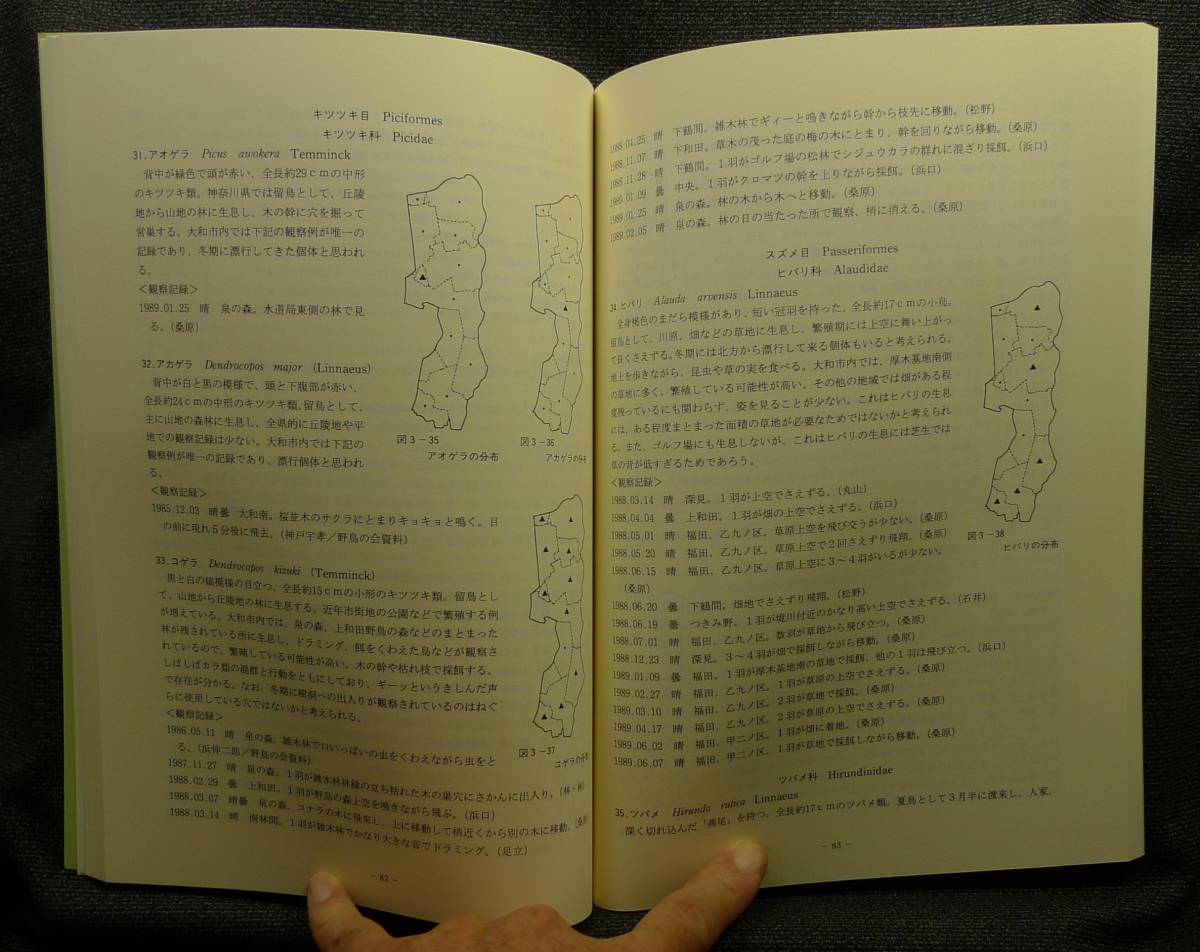 キツツキ目　Piciformes
キツツキ科　Picidae
31.アオゲラ　Picus awokera Temminck
背中が緑色で頭が赤い、全長約29cmの中形
のキツツキ類。神奈川県では留鳥として、丘陵
地から山地の林に生息し、木の幹に穴を掘って
営巣する。大和市内では下記の観察例が唯一の
記録であり、冬期に漂行してきた個体と思われ
る。
＜観察記録＞
1989.01.25　晴　泉の森。水道局東側の林で見
る。(桑原)
32.アカゲラ　Dendrocopos major (Linnaeus)
背中が白と黒の模様で、頭と下腹部が赤い、
全長約24cmの中形のキツツキ類。留鳥として、
主に山地の森林に生息し、全県的に丘陵地や平
地での観察記録は少ない。大和市内では下記の
観察例が唯一の記録であり、漂行個体と思われ
る。
＜観察記録＞
1985.12.03　晴曇　大和南。桜並木のサクラにとまりキョキョと鳴く。目
の前に現れ５分後に飛去。(神戸宇孝／野鳥の会資料)
33.コゲラ　Dendrocopos kizuki (Temminck)
黒と白の縞模様の目立つ、全長約15cmの小形のキツツキ類。留鳥とし
て、山地から丘陵地の林に生息する。近年市街地の公園などで繁殖する例
が増えている。大和市内では、泉の森、上和田野鳥の森などのまとまった
林が残されている所に生息し、ドラミング、餌をくわえた鳥などが観察さ
れているので、繁殖している可能性が高い。木の幹や枯れ枝で採餌する。
しばしばカラ類の混群と行動をともにしており、ギーッというきしんだ声
で存在が分かる。なお、冬期に樹洞への出入りが観察されているのはねぐ
らに使用している穴ではないかと考えられる。
＜観察記録＞
1986.05.11　晴　泉の森。雑木林で口いっぱいの虫をくわえながら虫をと
る。(浜伸二郎／野鳥の会資料)
1987.11.27　晴　泉の森。１羽が雑木林林縁の立ち枯れた木の巣穴にさかんに出入り。(林・林)
1988.02.29　曇　上和田。１羽が野鳥の森上空を鳴きながら飛ぶ。(浜口)
1988.03.07　晴曇　泉の森。コナラの木に飛来し、上に移動して梢近くから別の木に移動。(桑原
1988.03.14　晴　南林間。１羽が雑木林でかなり大きな音でドラミング。(足立)
図３－35
アオゲラの分布
図３－36
アカゲラの分布
図３－37
コゲラの分布
－82－
1988.04.25　晴　下鶴間。雑木林でギィーと鳴きながら幹から枝先に移動。(松野)
1988.11.07　晴　下和田。草木の茂った庭の梅の木にとまり、幹を回りながら移動。(桑原)
1988.11.28　晴　下鶴間。１羽がゴルフ場の松林でシジュウカラの群れに混ざり採餌。(浜口)
1989.01.09　曇　中央。１羽がクロマツの幹を上りながら採餌。(浜口)
1989.01.25　晴　泉の森。林の木から木へと移動。(桑原)
1989.02.05　晴　泉の森。林の日の当たった所で観察、梢に消える。(桑原)
スズメ目　Passeriformes
ヒバリ科　Alaudidae
34.ヒバリ　Alauda arvensis Linnaeus
全身褐色のまだら模様があり、短い冠羽を持った、全長約17cmの小鳥。
留鳥として、川原、畑などの草地に生息し、繁殖期には上空に舞い上がっ
て長くさえずる。冬期には北方から漂行して来る個体もいると考えられる。
地上を歩きながら、昆虫や草の実を食べる。大和市内では、厚木基地南側
の草地に多く、繁殖している可能性が高い。その他の地域では畑がある程
度残っているにも関わらず、姿を見ることが少ない。これはヒバリの生息
には、ある程度まとまった面積の草地が必要なためではないかと考えられ
る。また、ゴルフ場にも生息しないが、これはヒバリの生息には芝生では
草の背が低すぎるためであろう。
＜観察記録＞
1988.03.14　晴　深見。１羽が上空でさえずる。(丸山)
1988.04.04　曇　上和田。１羽が畑の上空でさえずる。(浜口)
1988.05.01　晴　福田、乙九ノ区。草原上空を飛び交うが少ない。(桑原)
1988.05.20　晴　福田、乙九ノ区。草原上空で２回さえずり飛翔。(桑原)
1988.06.15　晴　福田、乙九ノ区。草原上空に３～４羽がいるが少ない。
(桑原)
1988.06.20　曇　下鶴間。畑地でさえずり飛翔。(松野)
1988.06.19　曇　つきみ野。１羽が境川付近のかなり高い上空でさえずる。(石井)
1988.07.01　晴　福田、乙九ノ区。数羽が草地から飛び立つ。(桑原)
1988.12.23　晴　深見。３～４羽が畑で採餌しながら移動。(桑原)
1989.01.09　曇　福田。１羽が厚木基地南の草地で採餌、他の１羽は飛び立つ。(浜口)
1989.02.27　晴　福田、乙九ノ区。１羽が草原の上空でさえずる。(桑原)
1989.03.10　晴　福田、乙九ノ区。２羽が草地で採餌。(桑原)
1989.04.17　晴　福田、乙九ノ区。２羽が草原の上空でさえずる。(桑原)
1989.06.02　晴　福田、甲二ノ区。１羽が畑に着地。(桑原)
1989.06.07　晴　福田、甲二ノ区。１羽が草地で採餌しながら移動。(桑原)
図３－38
ヒバリの分布
ツバメ科　Hirundinidae
35.ツバメ　Hirundo rutica Linnaeus
深く切れ込んだ「燕尾」を持つ、全長約17cmのツバメ類。夏鳥として３月半に渡来し、人家、
－83－